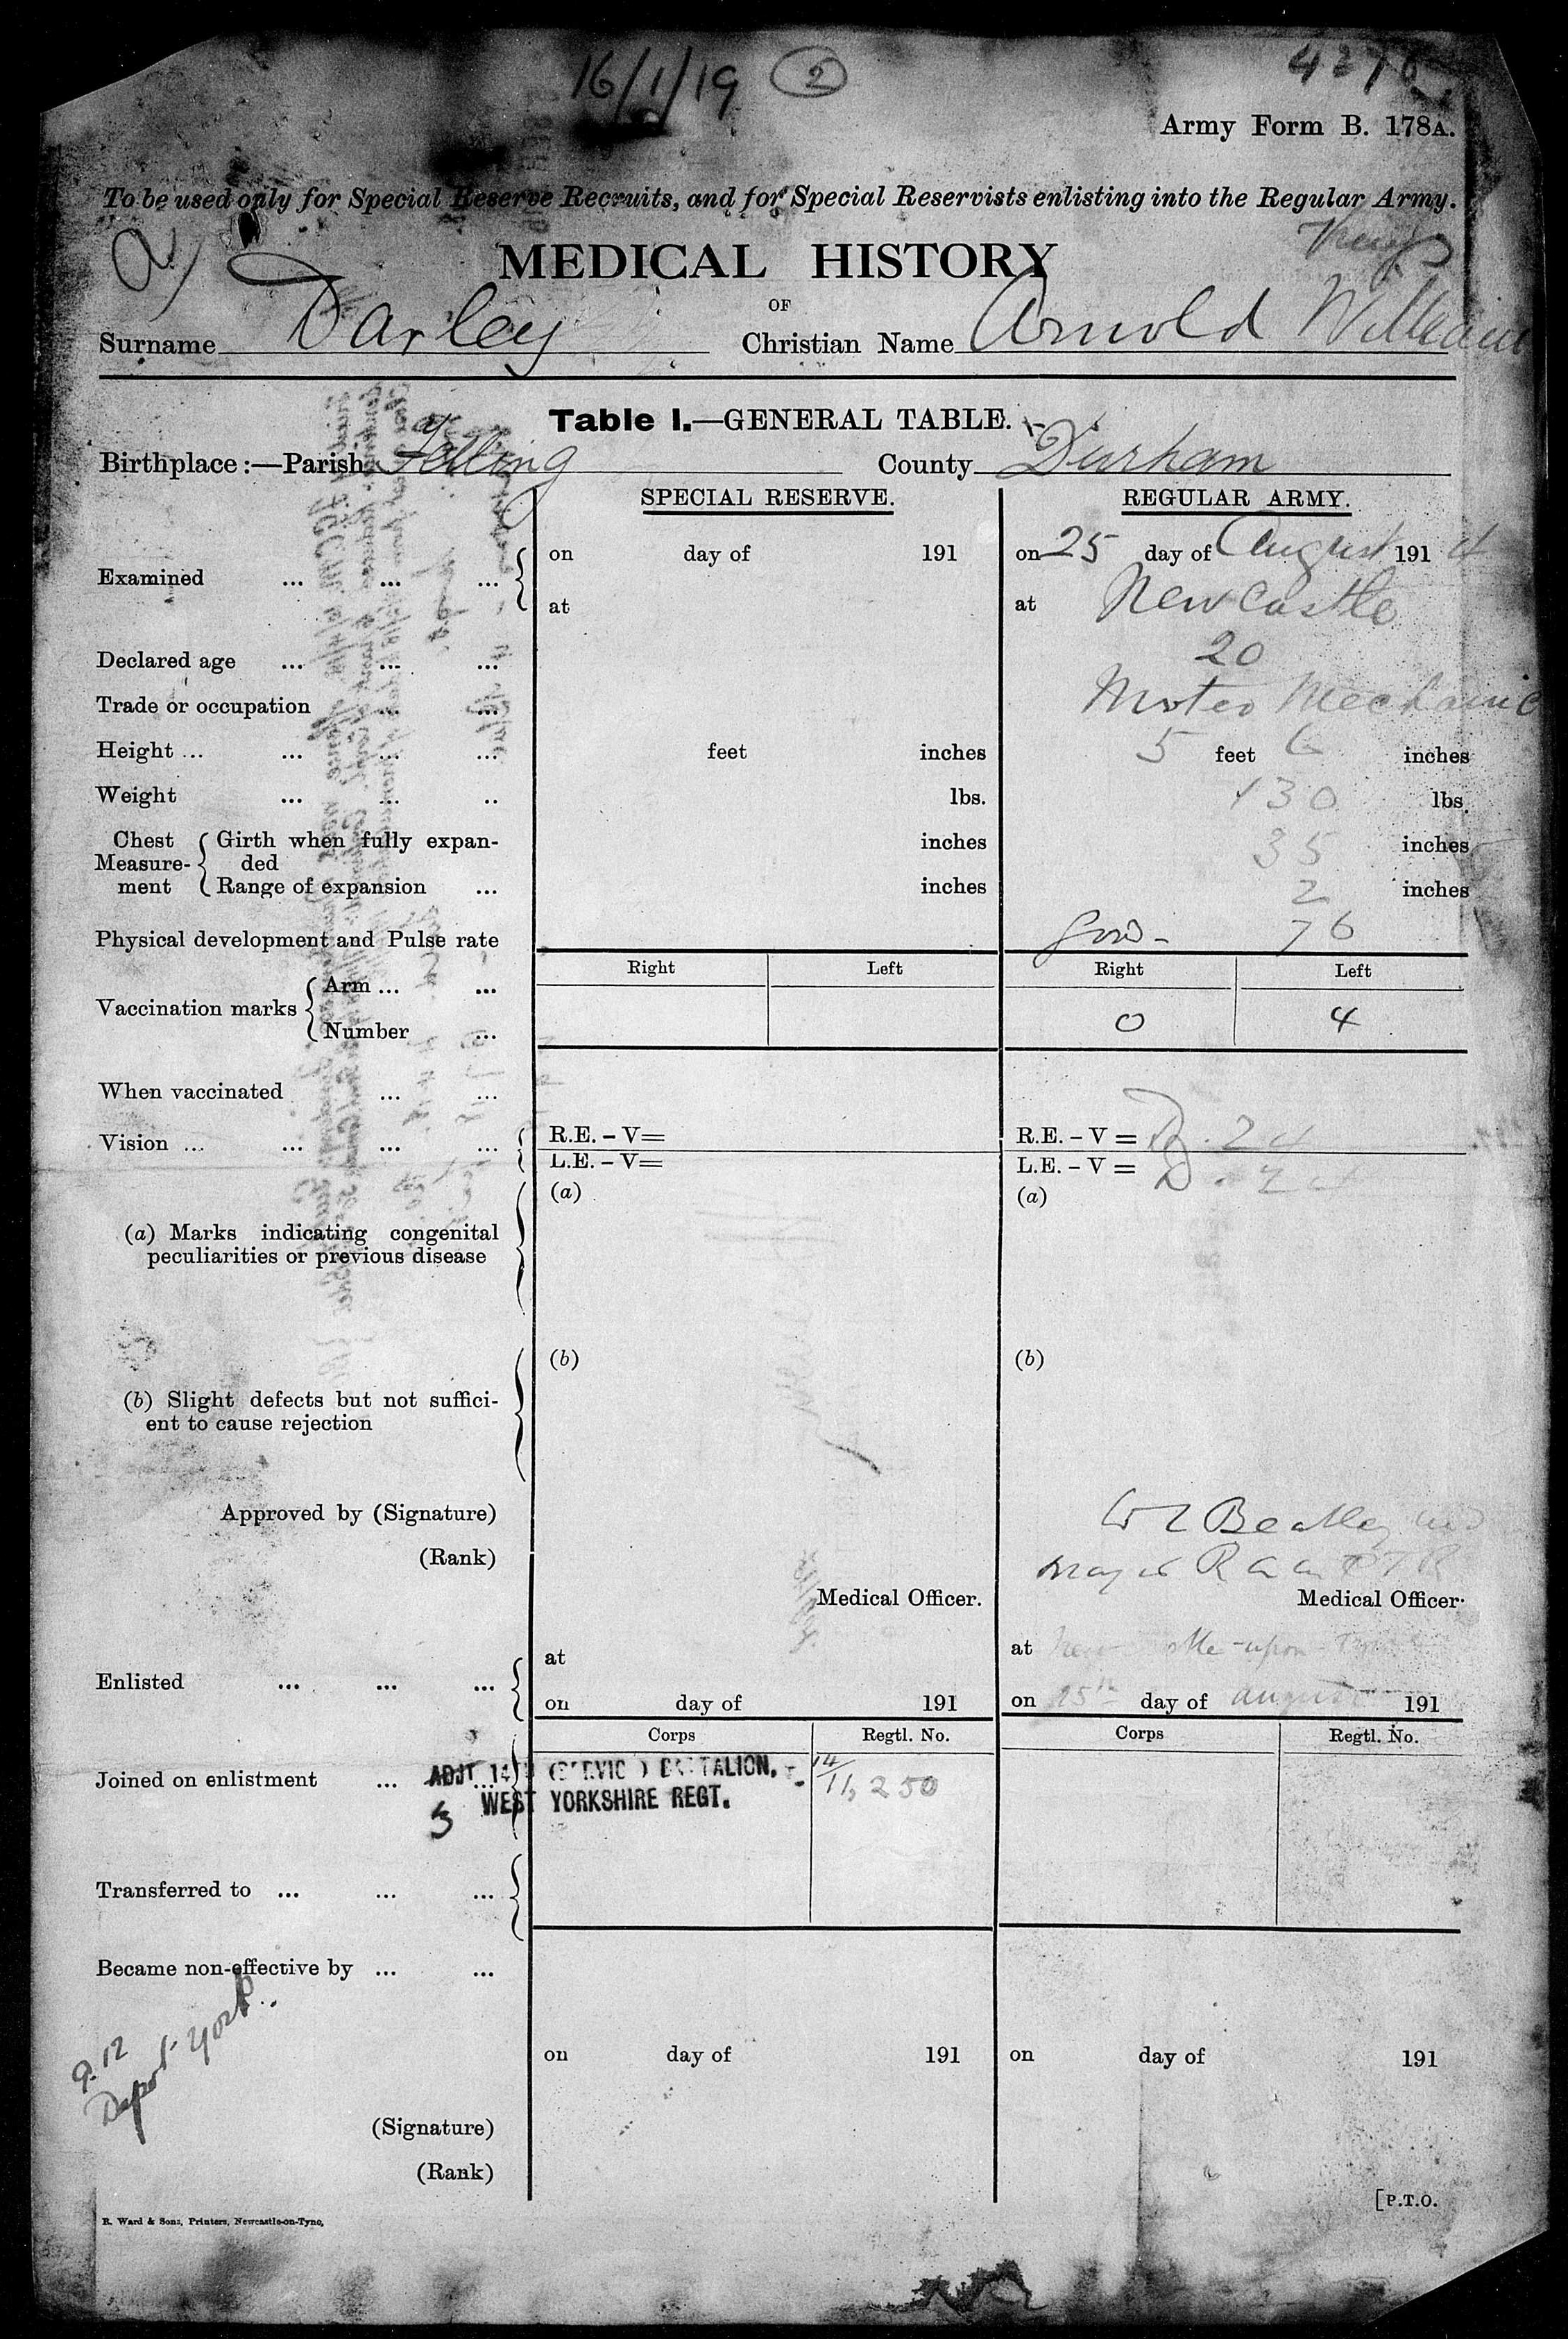 16/1/19 2
Army Form B. 178A.
To be used only for Special Reserve Recruits, and for Special Reservists enlisting into the Regular Army.
MEDICAL HISTORY
OF
Surname Darley Christian Name Arnold William
Table I.—GENERAL TABLE.
Birthplace:—Parish Felling County Durham
SPECIAL RESERVE. REGULAR ARMY.
Examined ... ... ... on day of 191 on 25 day of August 191 4
at at Newcastle
Declared age ... ... ... 20
Trade or occupation ... Motor Mechanic
Height ... ... ... ... feet inches 5 feet 6 inches
Weight ... ... .. lbs. 130 lbs.
Chest Measurement { Girth when fully expan-
ded inches 35 inches
Range of expansion ... inches 2 inches
Physical development and Pulse rate good- 76
Right Left Right Left
Vaccination marks { Arm ... ...
Number ... 0 4
When vaccinated ... ...
Vision ... ... ... ... R.E. – V= R.E. – V = D. 24
L.E. – V= L.E. – V = D. 24
(a) (a)
(a) Marks indicating congenital
peculiarities or previous disease
(b) (b)
(b) Slight defects but not suffici-
ent to cause rejection
Approved by (Signature)
(Rank) Major
Medical Officer. Medical Officer.
at at -upon-
Enlisted ... ... ... on day of 191 on 25th day of August 191
Corps Regtl. No. Corps Regtl. No.
Joined on enlistment ... ADJT. 14TH (SERVICE) BATTALION, 14/11,250
3 WEST YORKSHIRE REGT.
Transferred to ... ... ...
Became non-effective by ... ...
9.12
Depot York.
on day of 191 on day of 191
(Signature)
(Rank)
[P.T.O.
R. Ward & Sons, Printers, Newcastle-on-Tyne,